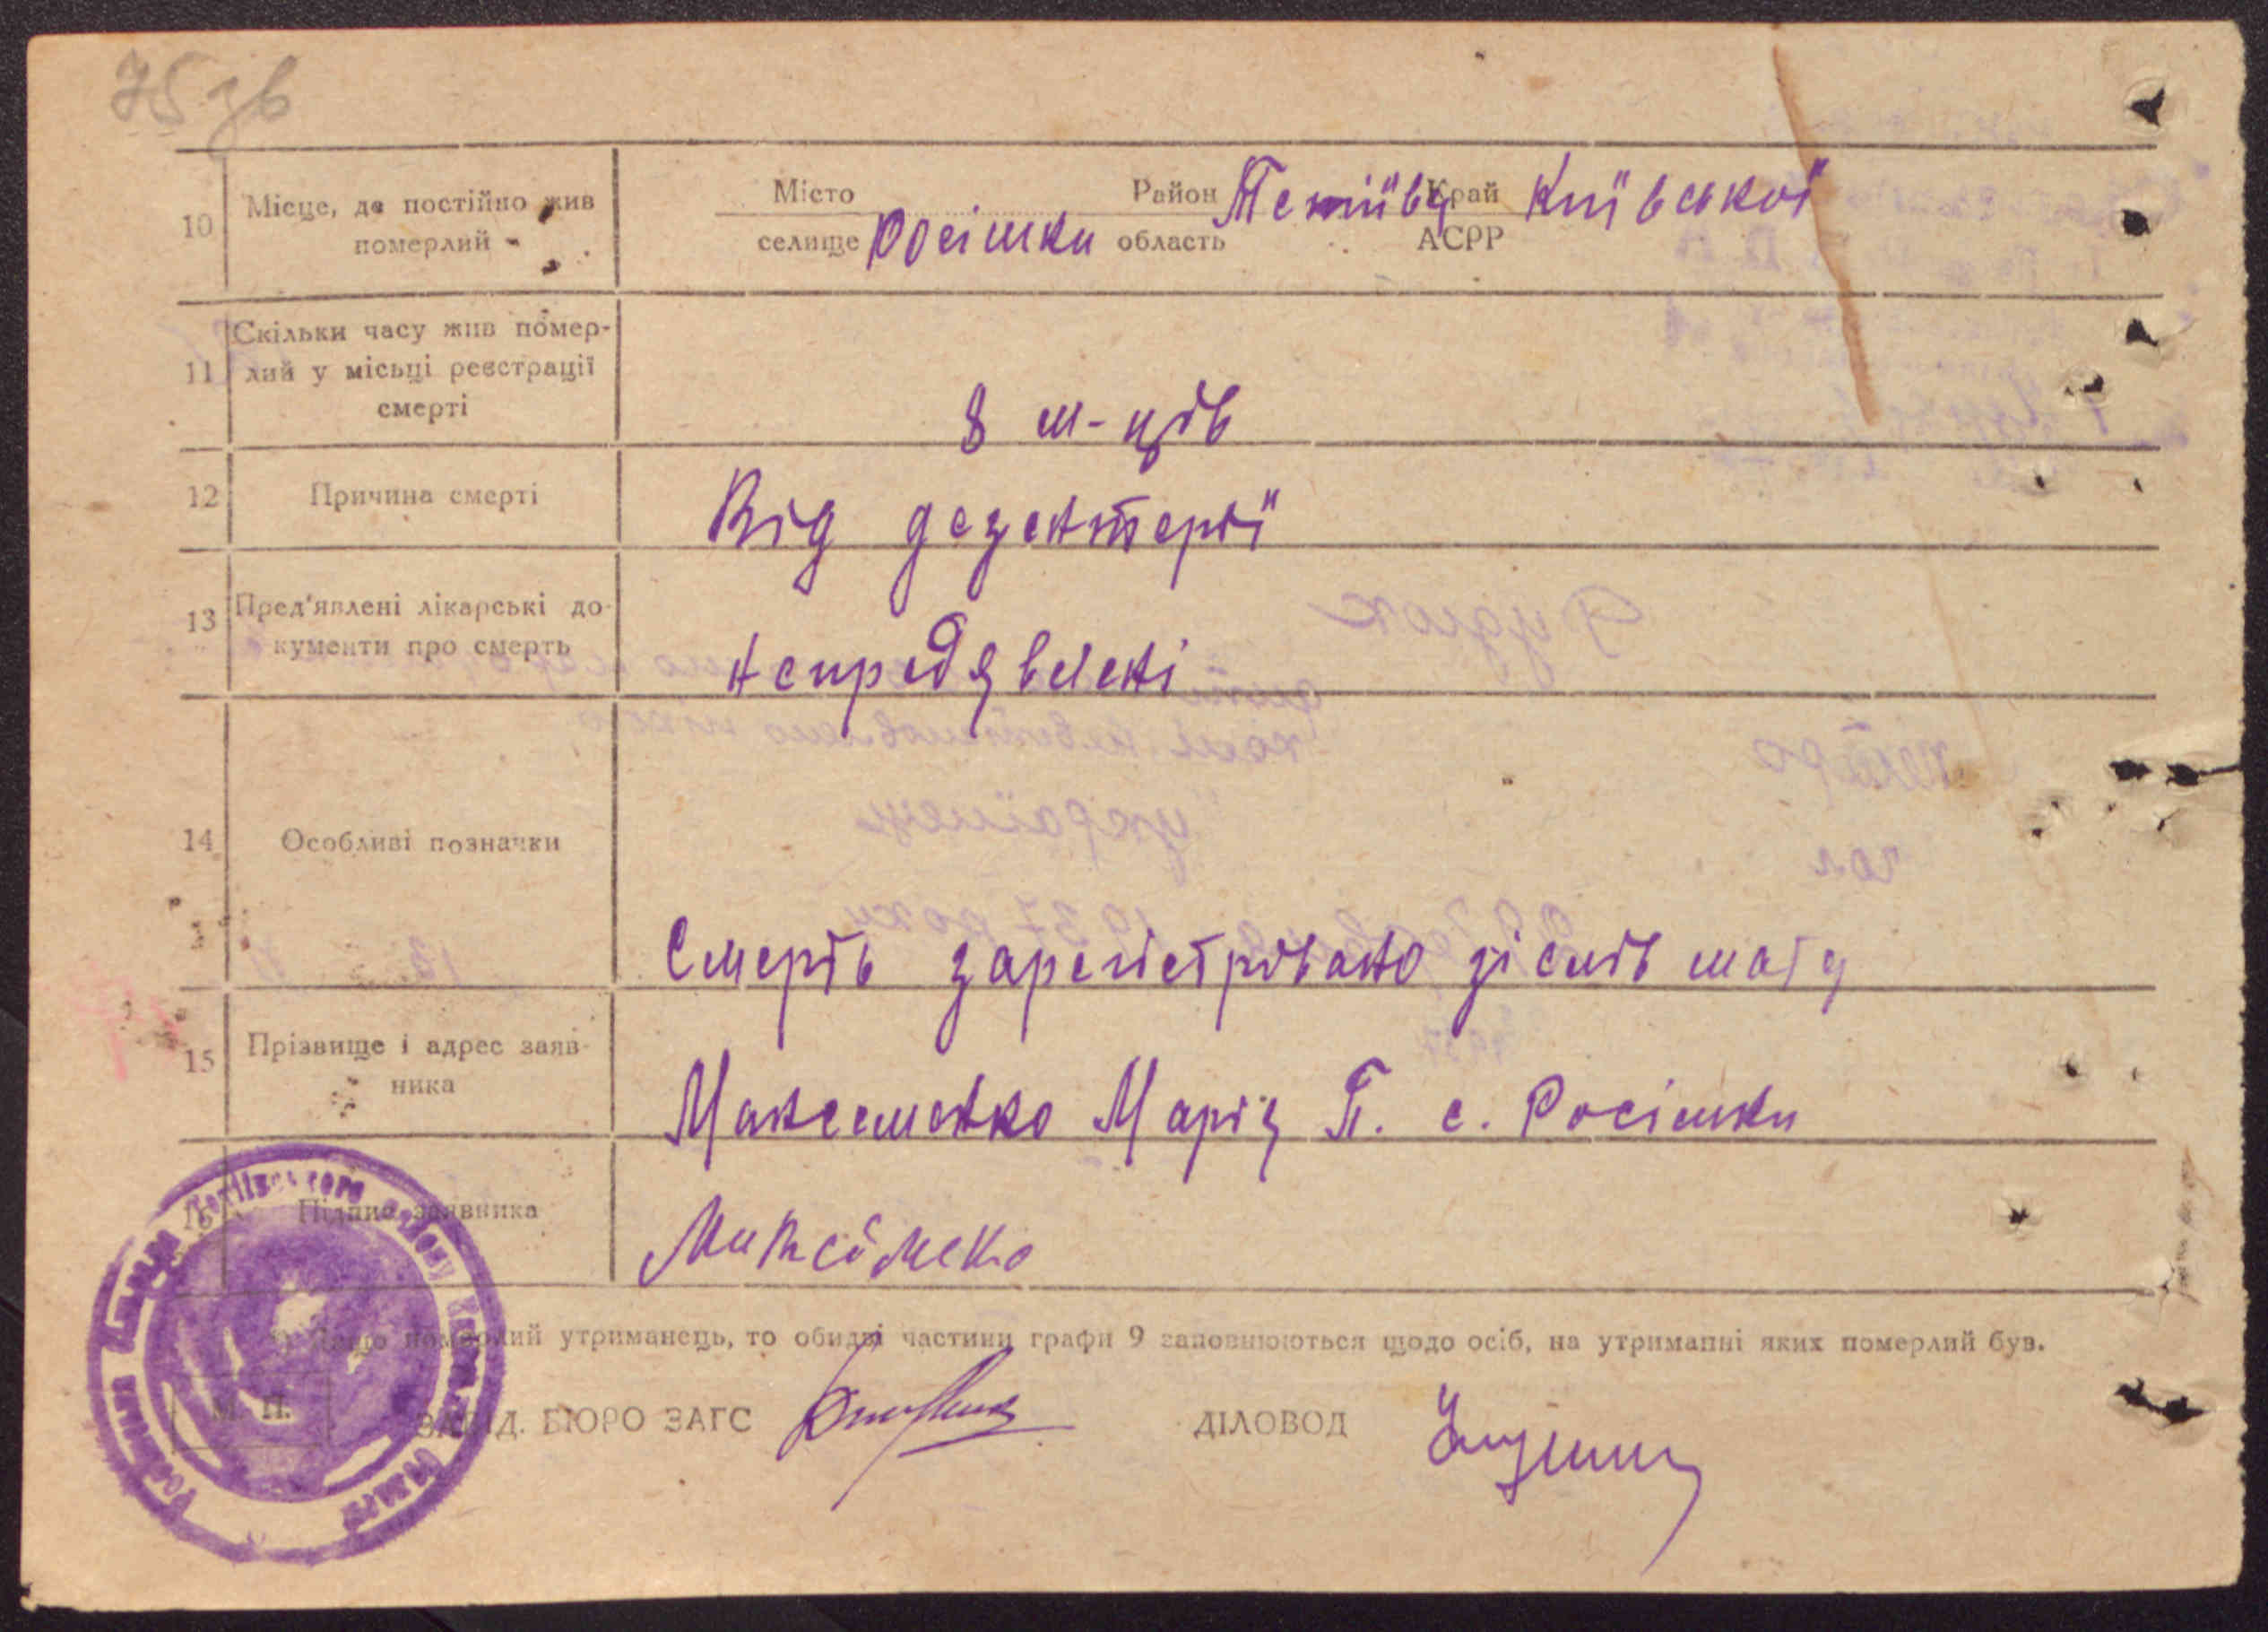 75 зв
10 Місце, де постійно жив Місто Район Тетіївс Край Київської
померлий селище Росішки область АСРР
Скільки часу жив помер-
11 лий у місьці реєстрації
смерті 8 м-ців
12 Причина смерті Від дезентерії
13 Пред'явлені лікарські до-
кументи про смерть непредявлені
14 Особливі позначки
Смерть зарегістрована зі слів маті
15 Прізвище і адрес заяв-
ника Максеменко Марія П. с. Росішки
16 Підпис заявника
*) Якщо померлий утриманець, то обидві частини графи 9 заповнюються щодо осіб, на утриманні яких померлий був.
М. П. ЗАВІД. БЮРО ЗАГС ДІЛОВОД